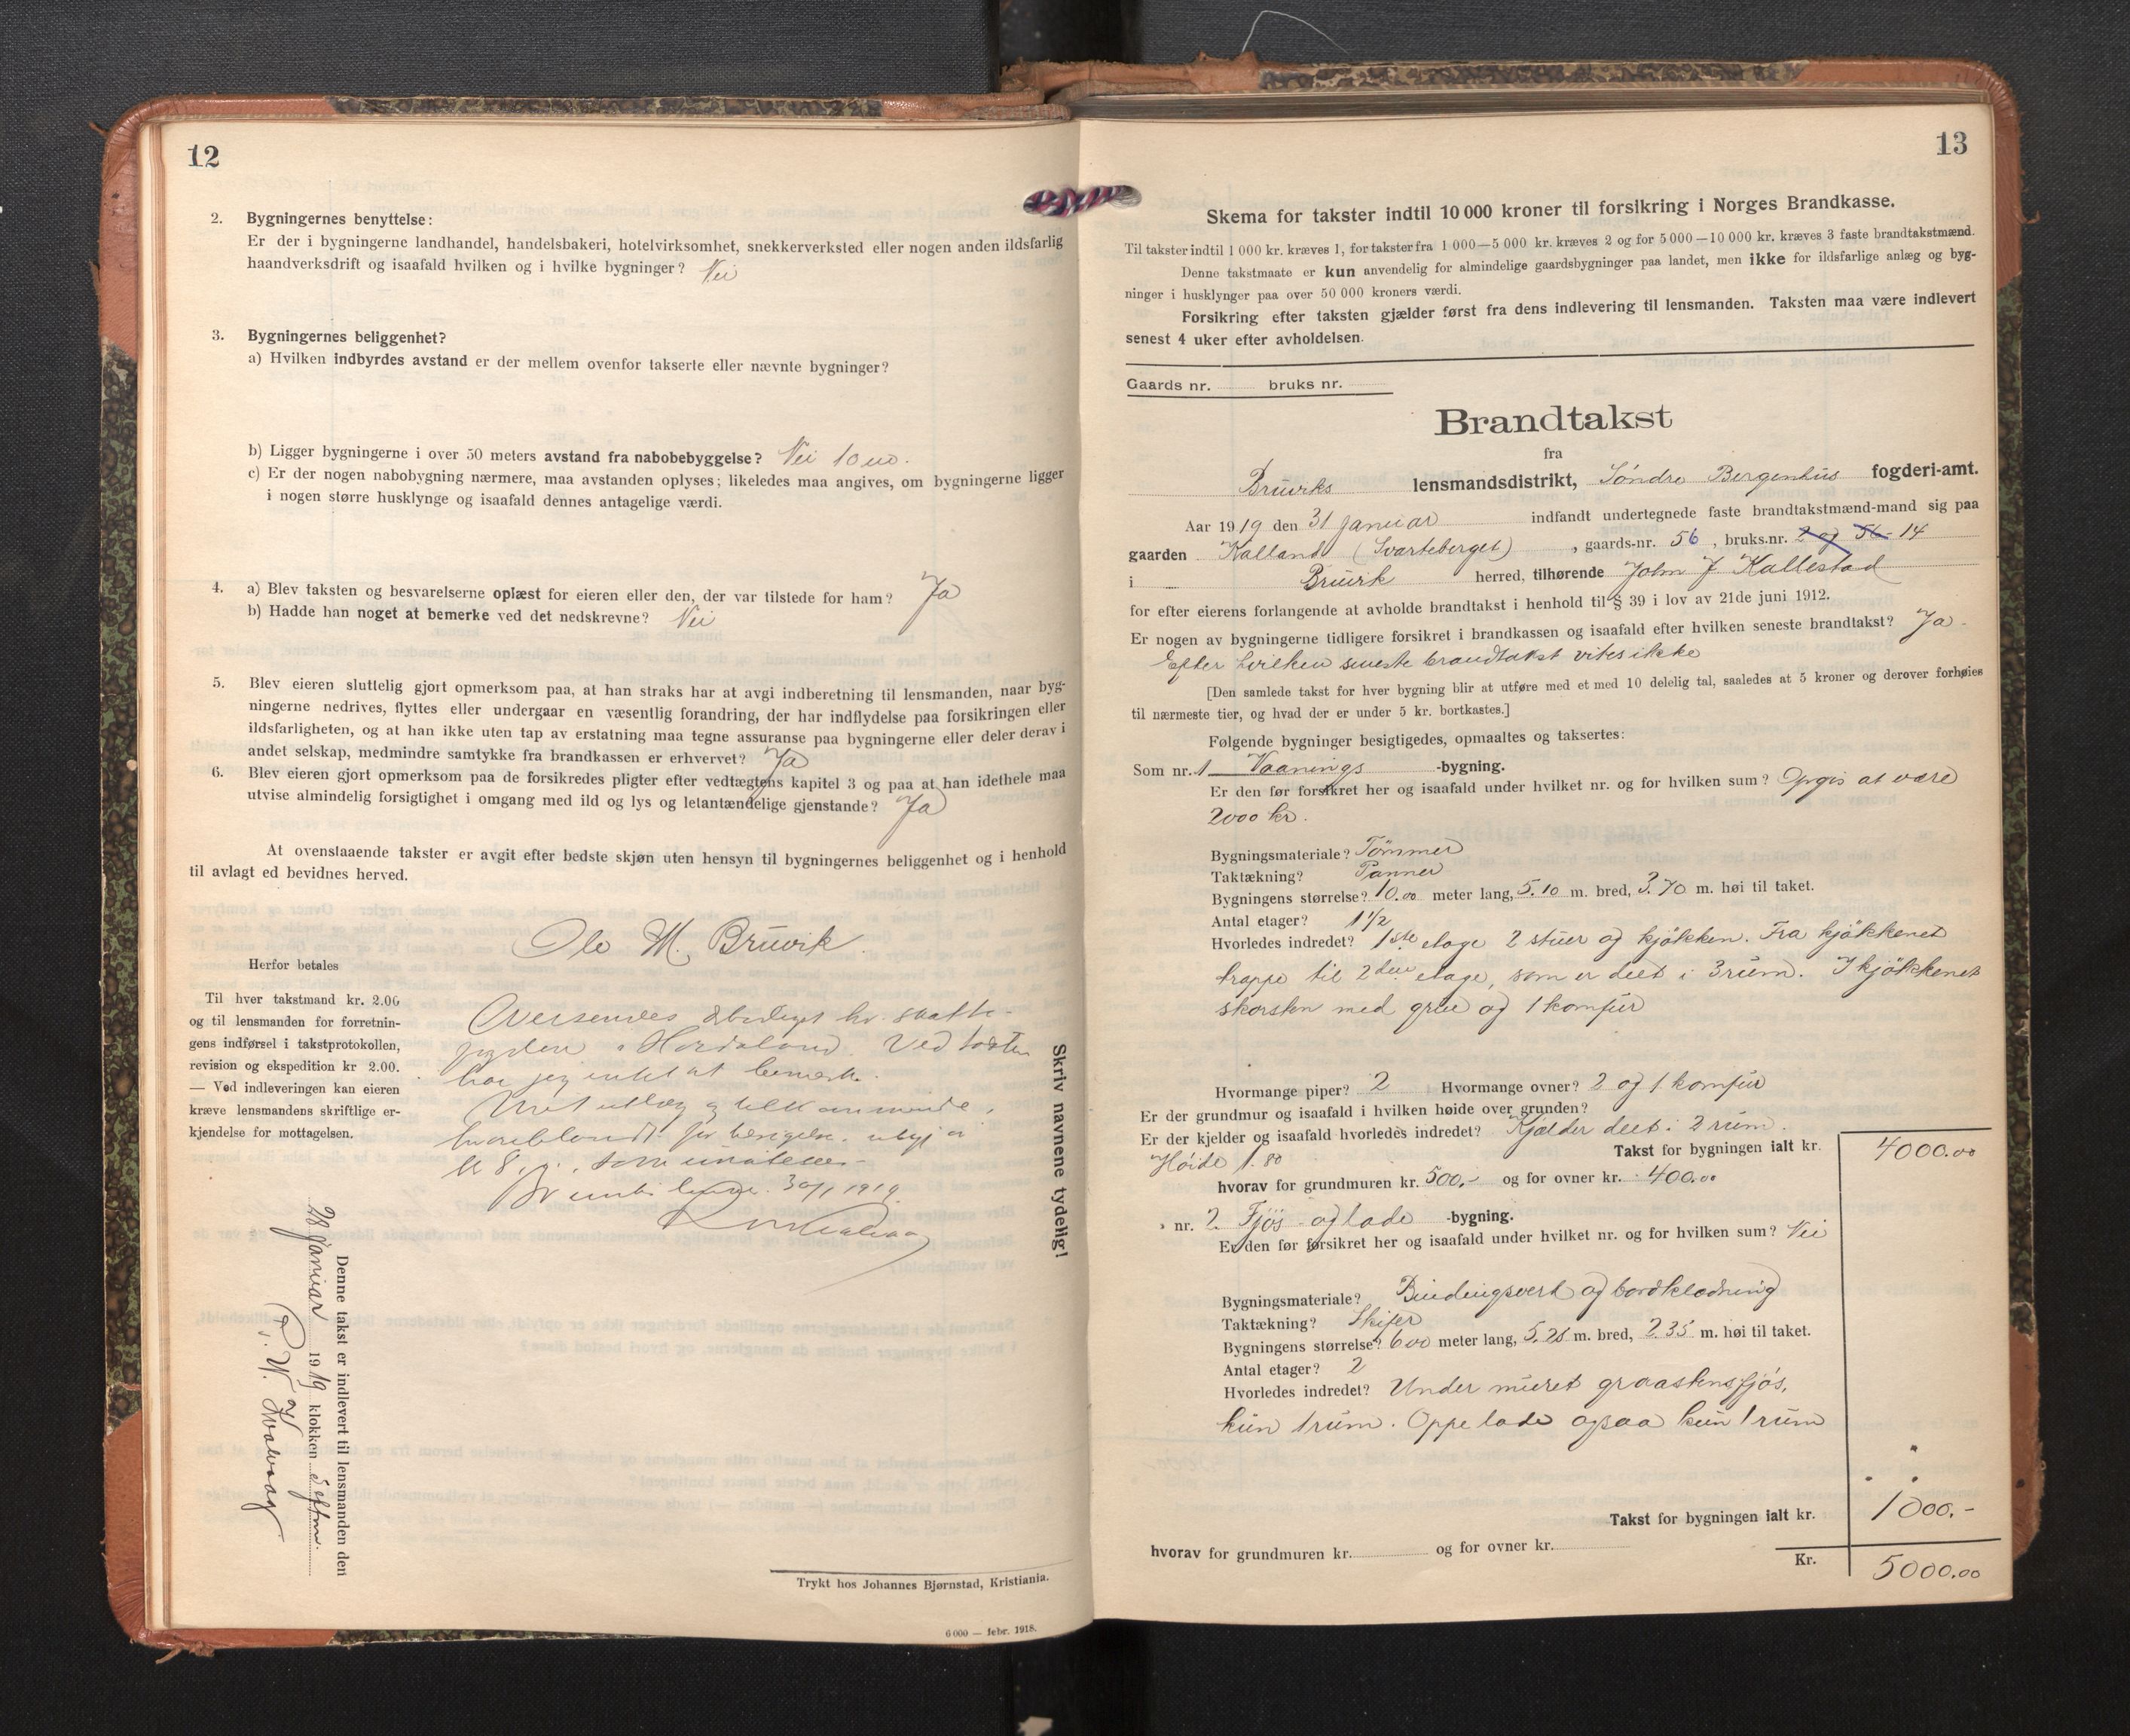 12
2. Bygningernes benyttelse:
Er der i bygningerne landhandel, handelsbakeri, hotelvirksomhet, snekkerverksted eller nogen anden ildsfarlig
haandverksdrift og isaafald hvilken og i hvilke bygninger? Nei
3. Bygningernes beliggenhet?
a) Hvilken indbyrdes avstand er der mellem ovenfor takserte eller nævnte bygninger?
b) Ligger bygningerne i over 50 meters avstand fra nabobebyggelse? Nei 10 m.
c) Er der nogen nabobygning nærmere, maa avstanden oplyses; likeledes maa angives, om bygningerne ligger
i nogen større husklynge og isaafald dennes antagelige værdi.
4. a) Blev taksten og besvarelserne oplæst for eieren eller den, der var tilstede for ham? Ja
b) Hadde han noget at bemerke ved det nedskrevne? Nei
5. Blev eieren sluttelig gjort opmerksom paa, at han straks har at avgi indberetning til lensmanden, naar byg-
ningerne nedrives, flyttes eller undergaar en væsentlig forandring, der har indflydelse paa forsikringen eller
ildsfarligheten, og at han ikke uten tap av erstatning maa tegne assuranse paa bygningerne eller deler derav i
andet selskap, medmindre samtykke fra brandkassen er erhvervet? Ja
6. Blev eieren gjort opmerksom paa de forsikredes pligter efter vedtægtens kapitel 3 og paa at han idethele maa
utvise almindelig forsigtighet i omgang med ild og lys og letantændelige gjenstande? Ja
At ovenstaaende takster er avgit efter bedste skjøn uten hensyn til bygningernes beliggenhet og i henhold
til avlagt ed bevidnes herved.
Ole M. Bruvik.
Herfor betales
Til hver takstmand kr. 2.00
og til lensmanden for forretnin-
gens indførsel i takstprotokollen,
revision og ekspedition kr 2.00.
— Ved indleveringen kan eieren
kræve lensmandens skriftlige er-
kjendelse for mottagelsen.
Oversendes ærbødigst hr. skatte-
fogden i Hordaland. Ved taksten
har jeg intet at bemerke.
30/1 1919.
Skriv navnene tydelig!
Denne takst er indlevert til lensmanden den
28 januar 1919 klokken eftm.
Trykt hos Johannes Bjørnstad, Kristiania.
6 000 — febr. 1918.
13
Skema for takster indtil 10 000 kroner til forsikring i Norges Brandkasse.
Til takster indtil 1 000 kr. kræves 1, for takster fra 1 000—5 000 kr. kræves 2 og for 5 000—10 000 kr. kræves 3 faste brandtakstmænd.
Denne takstmaate er kun anvendelig for almindelige gaardsbygninger paa landet, men ikke for ildsfarlige anlæg og byg-
ninger i husklynger paa over 50 000 kroners værdi.
Forsikring efter taksten gjælder først fra dens indlevering til lensmanden. Taksten maa være indlevert
senest 4 uker efter avholdelsen.
Gaards nr. bruks nr.
Brandtakst
fra
Bruviks lensmandsdistrikt, Söndre Bergenhus fogderi-amt.
Aar 1919 den 31 januar indfandt undertegnede faste brandtakstmænd-mand sig paa
gaarden Kalland (Svarteberget), gaards-nr. 56, bruks.nr. 2 og 56 14
i Bruvik herred, tilhørende John J. Kallestad
for efter eierens forlangende at avholde brandtakst i henhold til § 39 i lov av 21de juni 1912.
Er nogen av bygningerne tidligere forsikret i brandkassen og isaafald efter hvilken seneste brandtakst? Ja.
Efter hvilken seneste brandtakst vites ikke
[Den samlede takst for hver bygning blir at utføre med et med 10 delelig tal, saaledes at 5 kroner og derover forhøies
til nærmeste tier, og hvad der er under 5 kr. bortkastes.]
Følgende bygninger besigtigedes, opmaaltes og taksertes:
Som nr. 1 Vaanings -bygning.
Er den før forsikret her og isaafald under hvilket nr. og for hvilken sum? Opgis at være
2000 kr.
Bygningsmateriale? Tömmer
Taktækning? Panner
Bygningens størrelse? 10.00 meter lang, 5.10 m. bred, 3.70 m. høi til taket.
Antal etager? 1 1/2
Hvorledes indredet? 1ste etage 2 stuer og kjökken. Fra kjökkenet
trappe til 2den etage, som er delt i 3 rum. I kjökkenet
skorsten med grue og 1 komfur
Hvormange piper? 2 Hvormange ovner? 2 og 1 komfur
Er der grundmur og isaafald i hvilken høide over grunden?
Er der kjelder og isaafald hvorledes indredet? Kjælder delt i 2 rum.
Höide 1.80
Takst for bygningen ialt kr. 4000.00
hvorav for grundmuren kr. 500.- og for ovner kr. 400.00
" nr. 2. Fjös og lade -bygning.
Er den før forsikret her og isaafald under hvilket nr. og for hvilken sum? Nei
Bygningsmateriale? Bindingsverk og bordklædning
Taktækning? Skifer
Bygningens størrelse? 6 00 meter lang, 5.25 m. bred, 2.35 m. høi til taket.
Antal etager? 2
Hvorledes indredet? Under muret graastensfjös,
kun 1 rum. Oppe lade ogsaa kun 1 rum
Takst for bygningen ialt kr. 1000.-
hvorav for grundmuren kr. og for ovner kr.
Kr. 5000.00